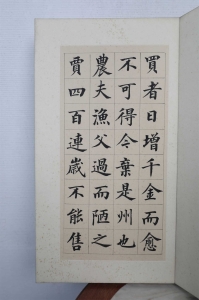 買者日增千金而愈
不可得今棄是州也
農夫漁父過而陋之
賈四百連歲不能售